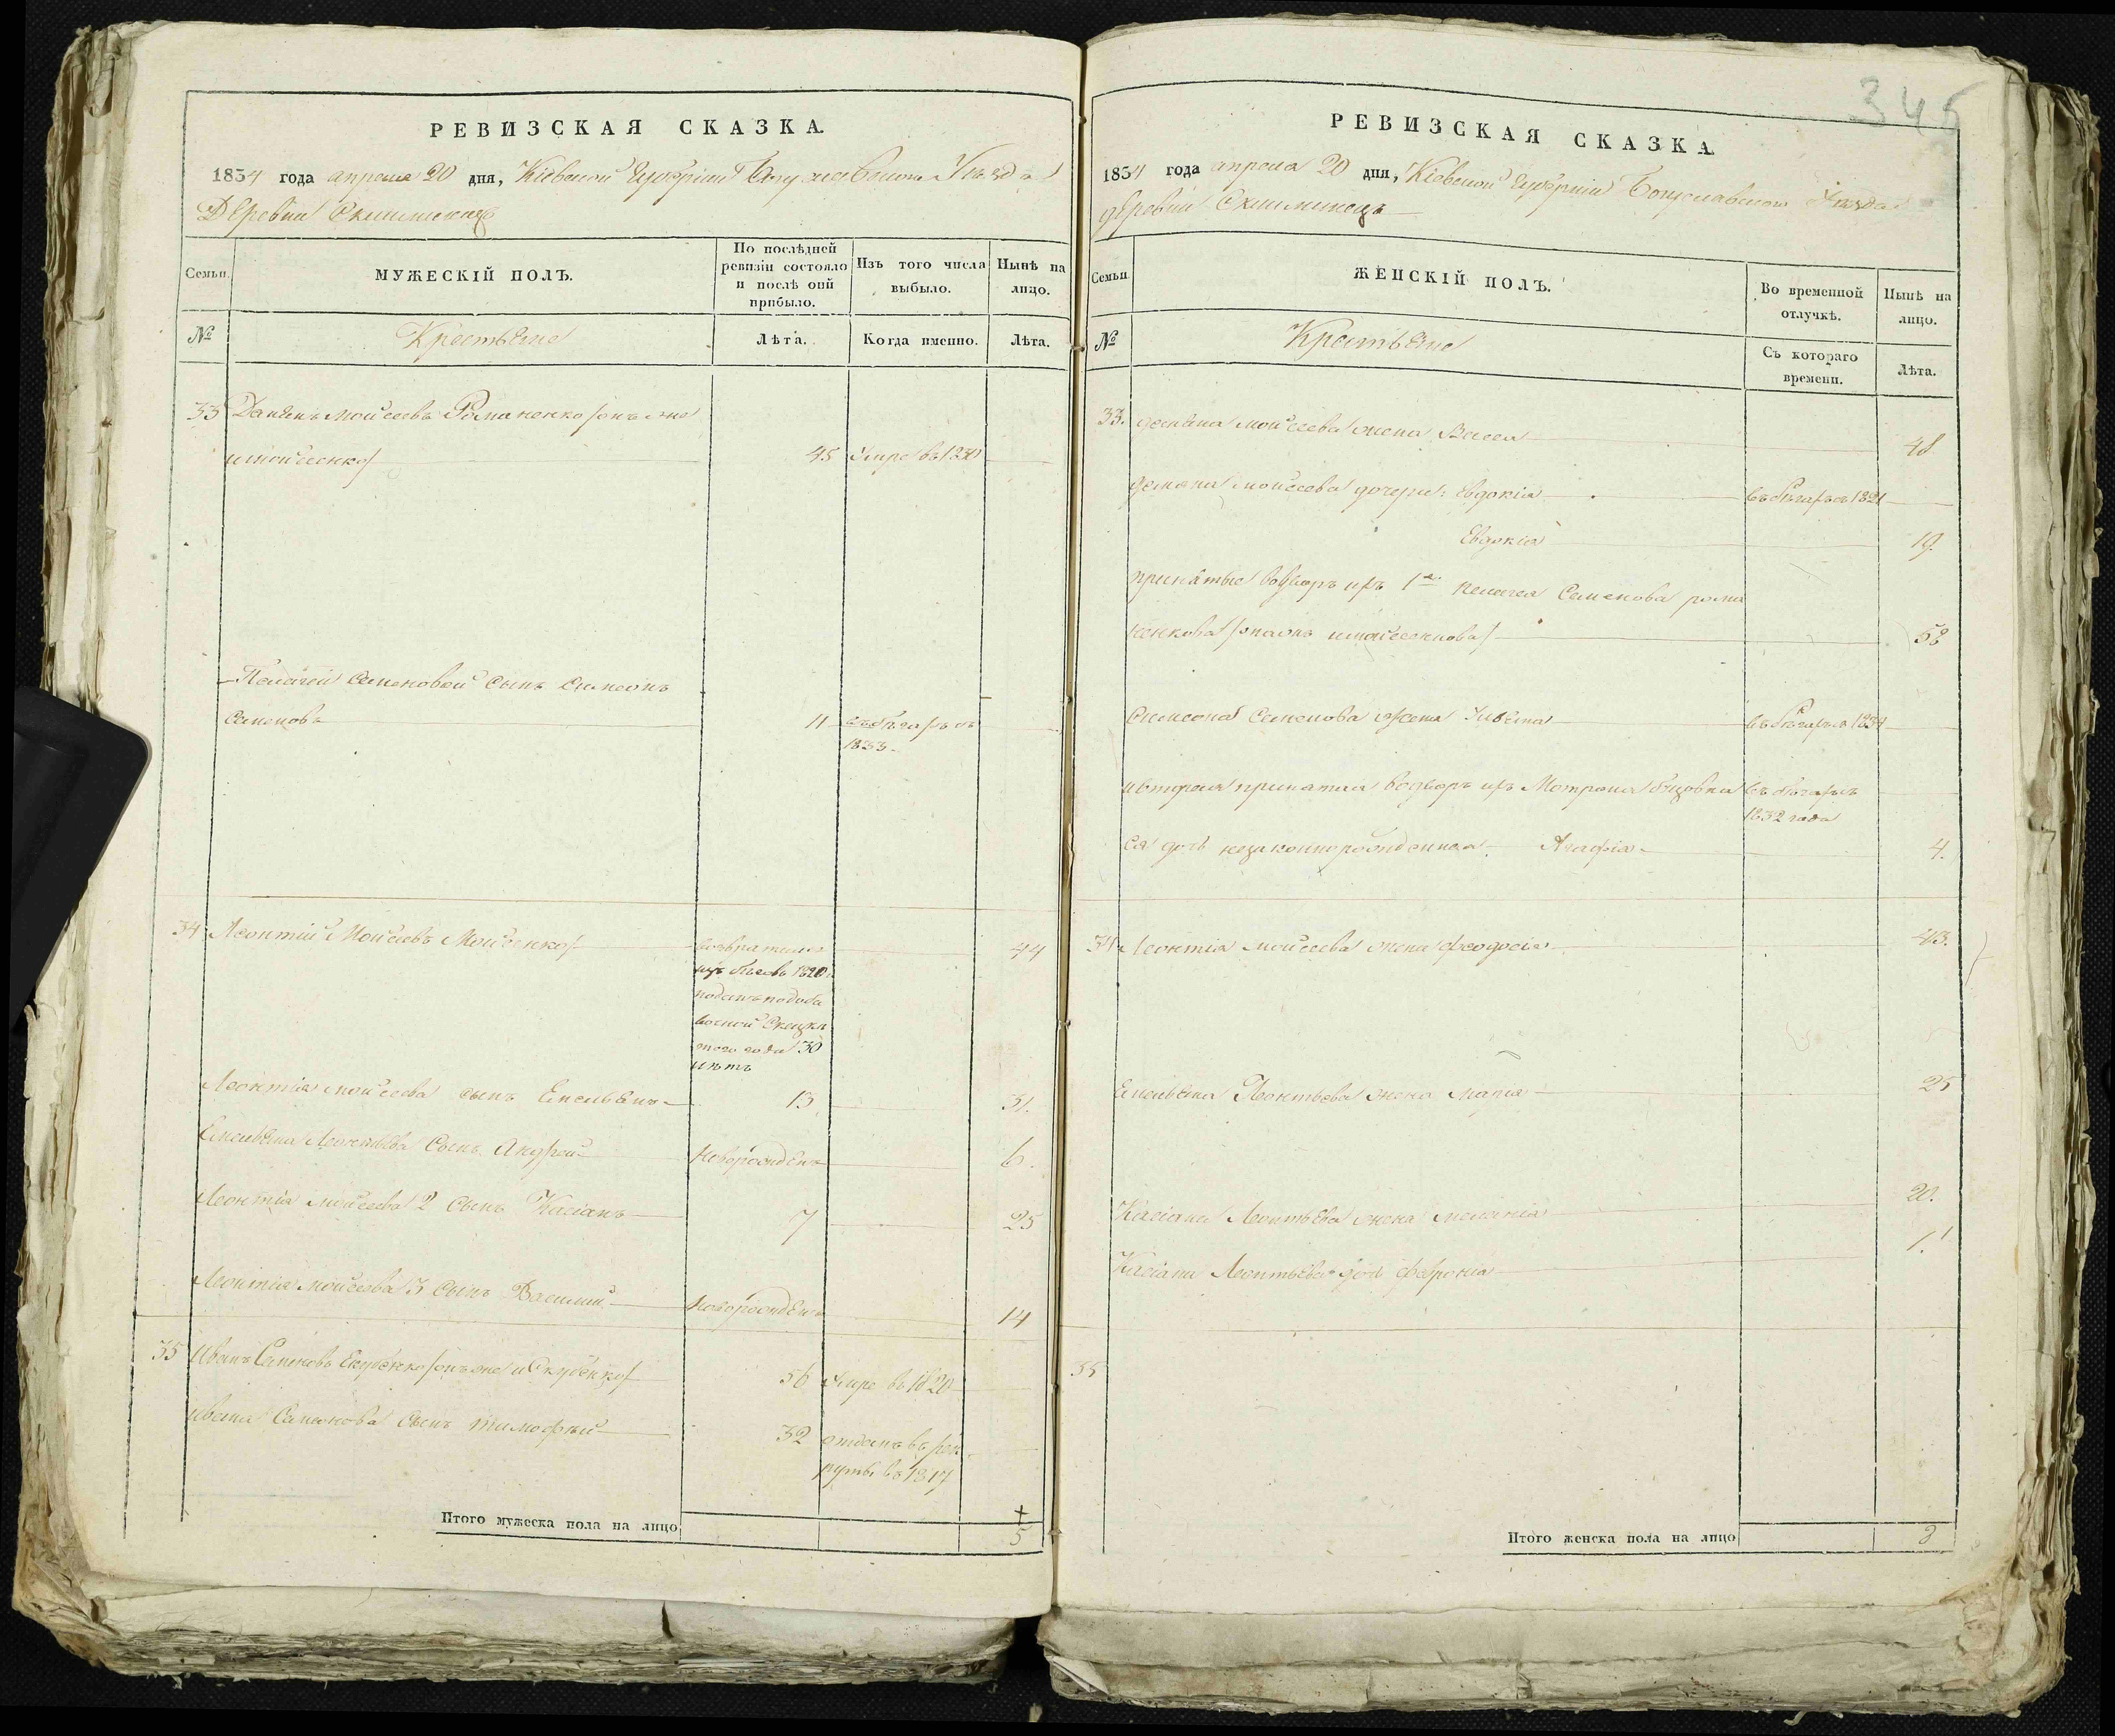 РЕВИЗСКАЯ СКАЗКА.
1834 года апреля 20 дня, Кіевской Губерніи Богуславского Уѣзда
Деревни
Семьи.
МУЖЕСКІЙ ПОЛЪ.
По послѣдней ревизіи состояло и послѣ оной прибыло.
Изъ того числа выбыло.
Нынѣ на лицо.
№
Крестьяне
Лѣта.
Когда именно.
Лѣта.
33 Моисеевъ Романенко онъ же
и Моисеенко 45 Умре въ 1830
Пелагеи Семеновой сынъ Симеонъ
Семеновъ 11 въ бѣгахъ съ
1833
34 Леонтій Моисеевъ Моисеенко 44
возвратился
изъ бѣговъ 1820
поданъ по доба
вочной Сказки
того года 30
лѣтъ
Леонтія Моисеева сынъ Емельянъ 13 31.
Емельяна Леонтьева Сынъ Андрей Новорожденъ 6.
Леонтія Моисеева 2 Сынъ Касіанъ 7 25
Леонтія Моисеева 3 Сынъ Василий Новорожденъ 14
35 Иванъ Семеновъ онъ же и 56 Умре въ 1820
Ивана Семенова Сынъ Тимофѣй 32 отданъ въ рек
руты въ 1817
Итого мужеска пола на лицо 5
345
РЕВИЗСКАЯ СКАЗКА
1834 года апреля 20 дня, Кіевской Губерніи Богуславского Уѣзда
деревни
Семьи.
ЖЕНСКІЙ ПОЛЪ.
Во временной отлучкѣ.
Нынѣ на лицо.
№
Крестьяне
Съ котораго времени.
Лѣта.
33. Моисеева жена 48
Моисеева дочери: Евдокія въ бѣгахъ съ 1821
Евдокія 19.
принятые во дворъ ихъ 1я Пелагея Семенова рома
ненкова онаяжъ и Моисеенкова 58
Симеона Семенова жена Ульяна въ бѣгахъ съ 1834
и вторая принятая во дворъ ихъ Мотрона въ бѣгахъ съ
1832 года
Ея дочь незаконнорожденная Агафія 4.
34 Леонтія Моисеева жена Феодосія 43.
Емельяна Леонтьева жена Марія 25
Касіана Леонтьева жена Меланія 20.
Касіана Леонтьева дочь Февронія 1.
35
Итого женска пола на лицо 8